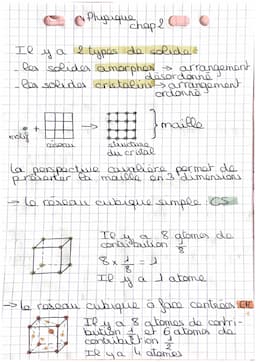 Physique
chap 2
Il y a 2 types de solide
- les solides amorphes → arrangement
désordonné
- les solides cristalins → arrangement
ordonné
motif + réseau → structure
du cristal
maille
La perspective cavalière permet de
présenter la maille en 3 dimensions
→ Le réseau cubique simple : CS
Il y a 8 atomes de
contribution 1/8
8 × 1/8 = 1
Il y a 1 atome
→ Le réseau cubique à face centrées :
Il y a 8 atomes de contri-
bution 1/8 et 6 atomes de
contribution 1/2
Il y a 4 atomes